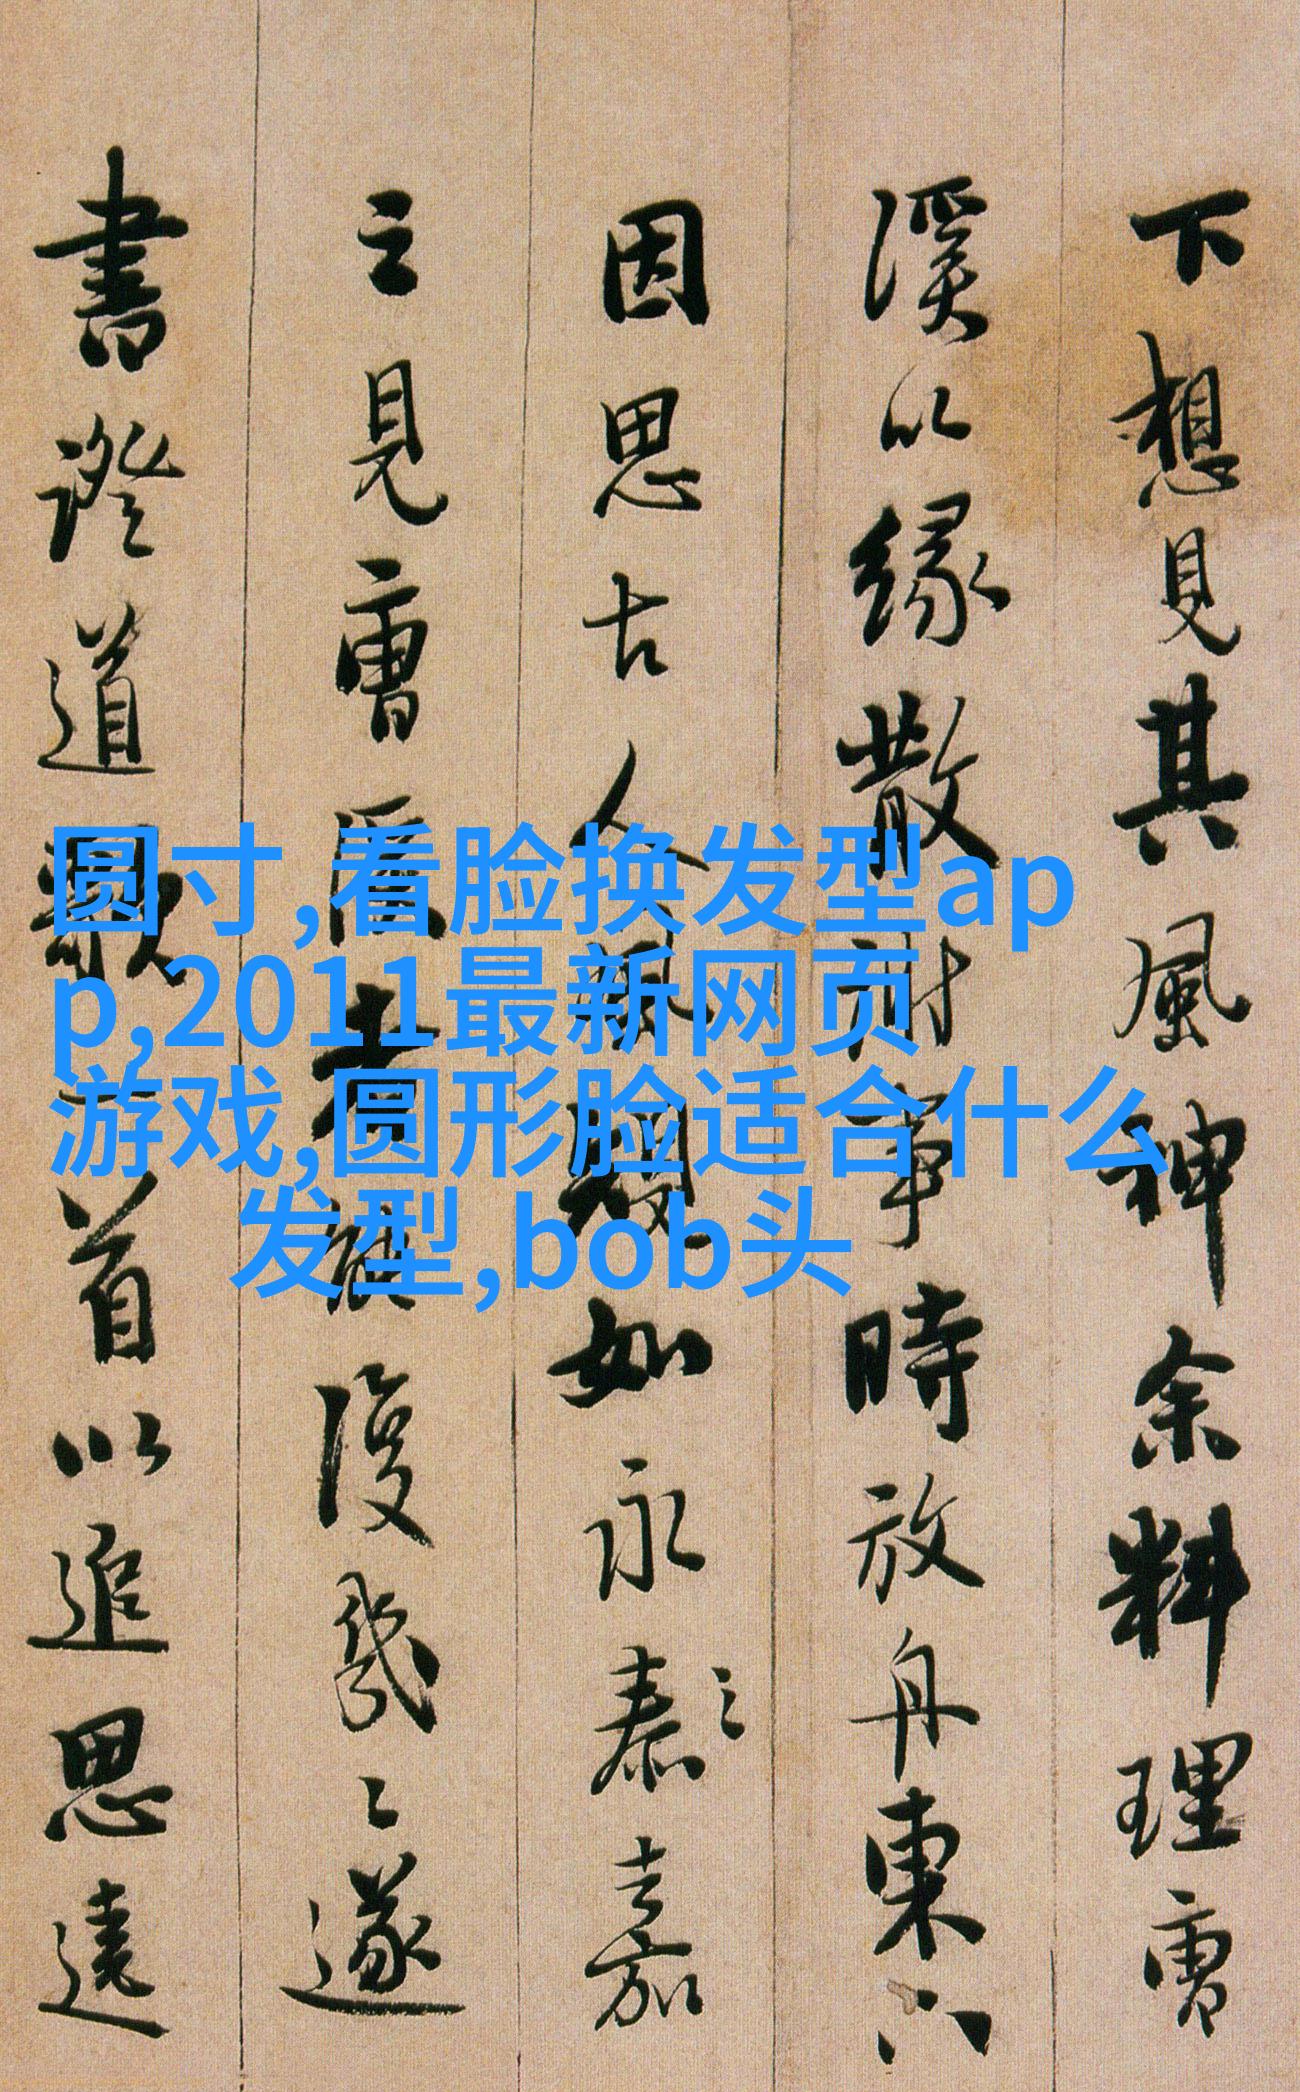 下想見其風神余料理霅
溪以緣散時放舟東
因思古人風如永泰之嘉
之見霅溪復幾遂
書證道歌一首以追思遠
圆寸,看脸换发型ap
p,2011最新网页
游戏,圆形脸适合什么
发型,bob头